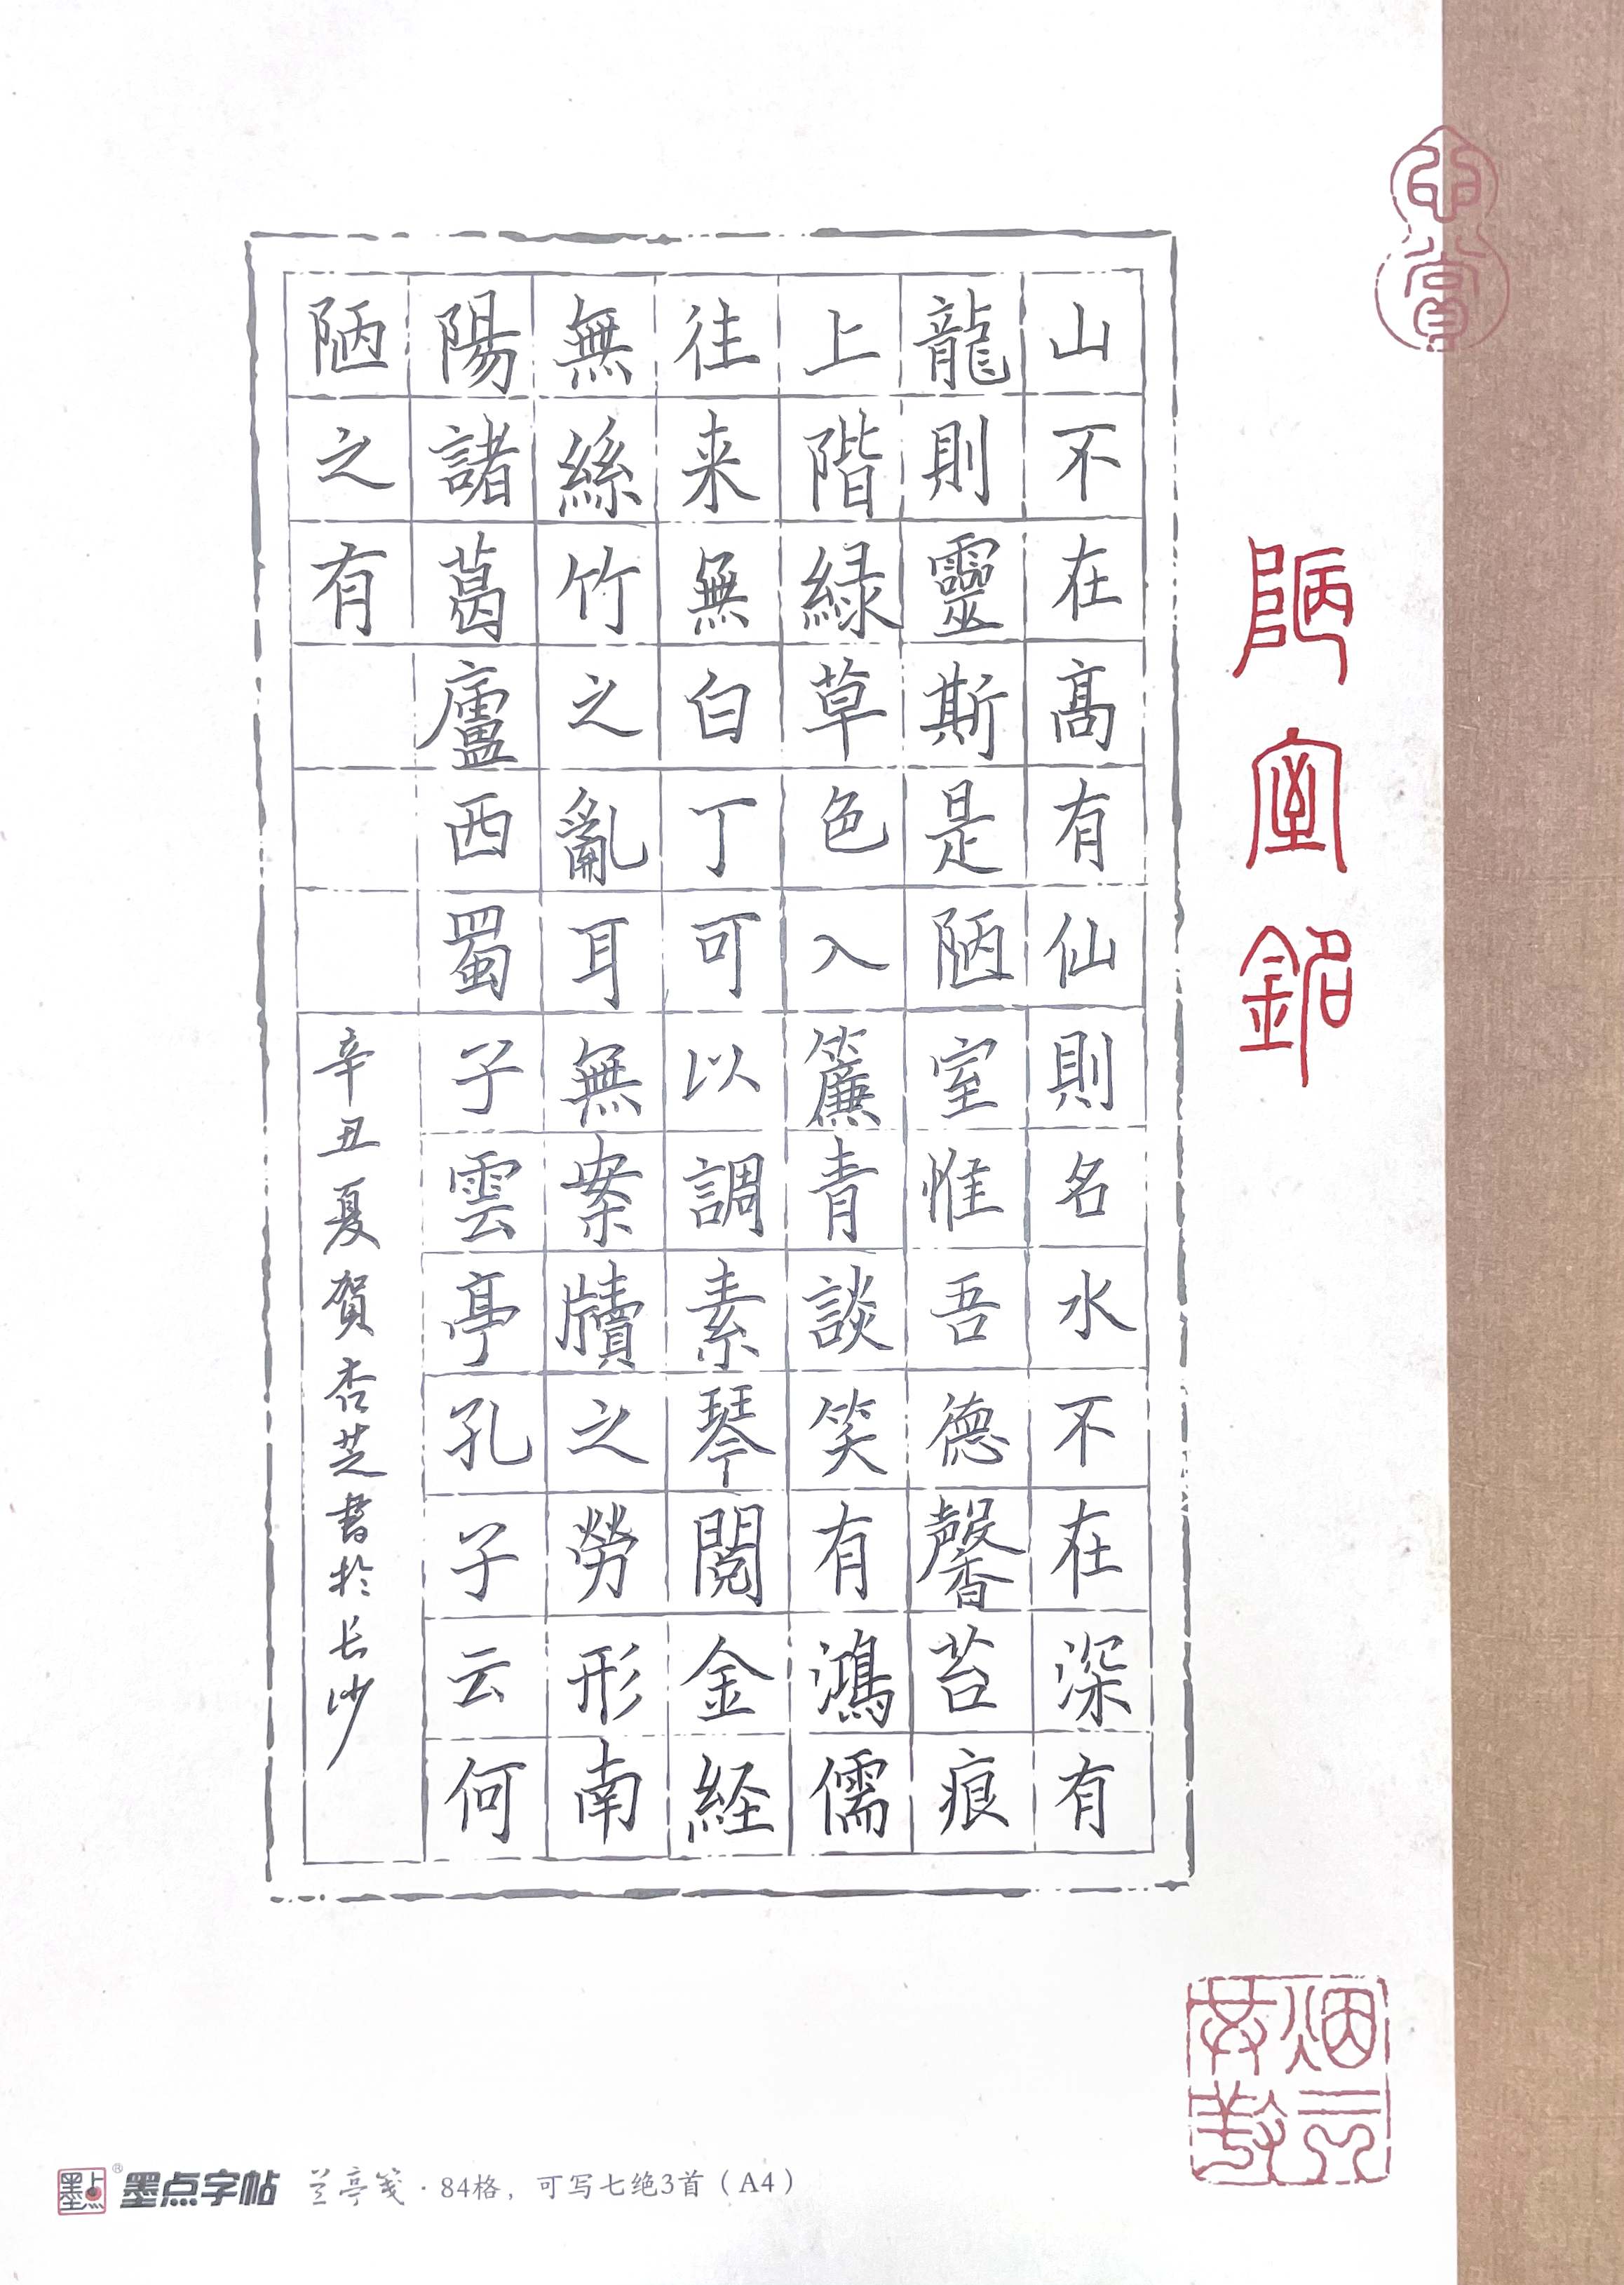 陋室銘
山不在高有仙則名水不在深有
龍則靈斯是陋室惟吾德馨苔痕
上階緑草色入簾青談笑有鴻儒
往来無白丁可以調素琴閱金経
無絲竹之亂耳無案牘之勞形南
陽諸葛廬西蜀子雲亭孔子云何
陋之有
辛丑夏賀杏芝書於长沙
墨点字帖 兰亭笺·84格，可写七绝3首（A4）